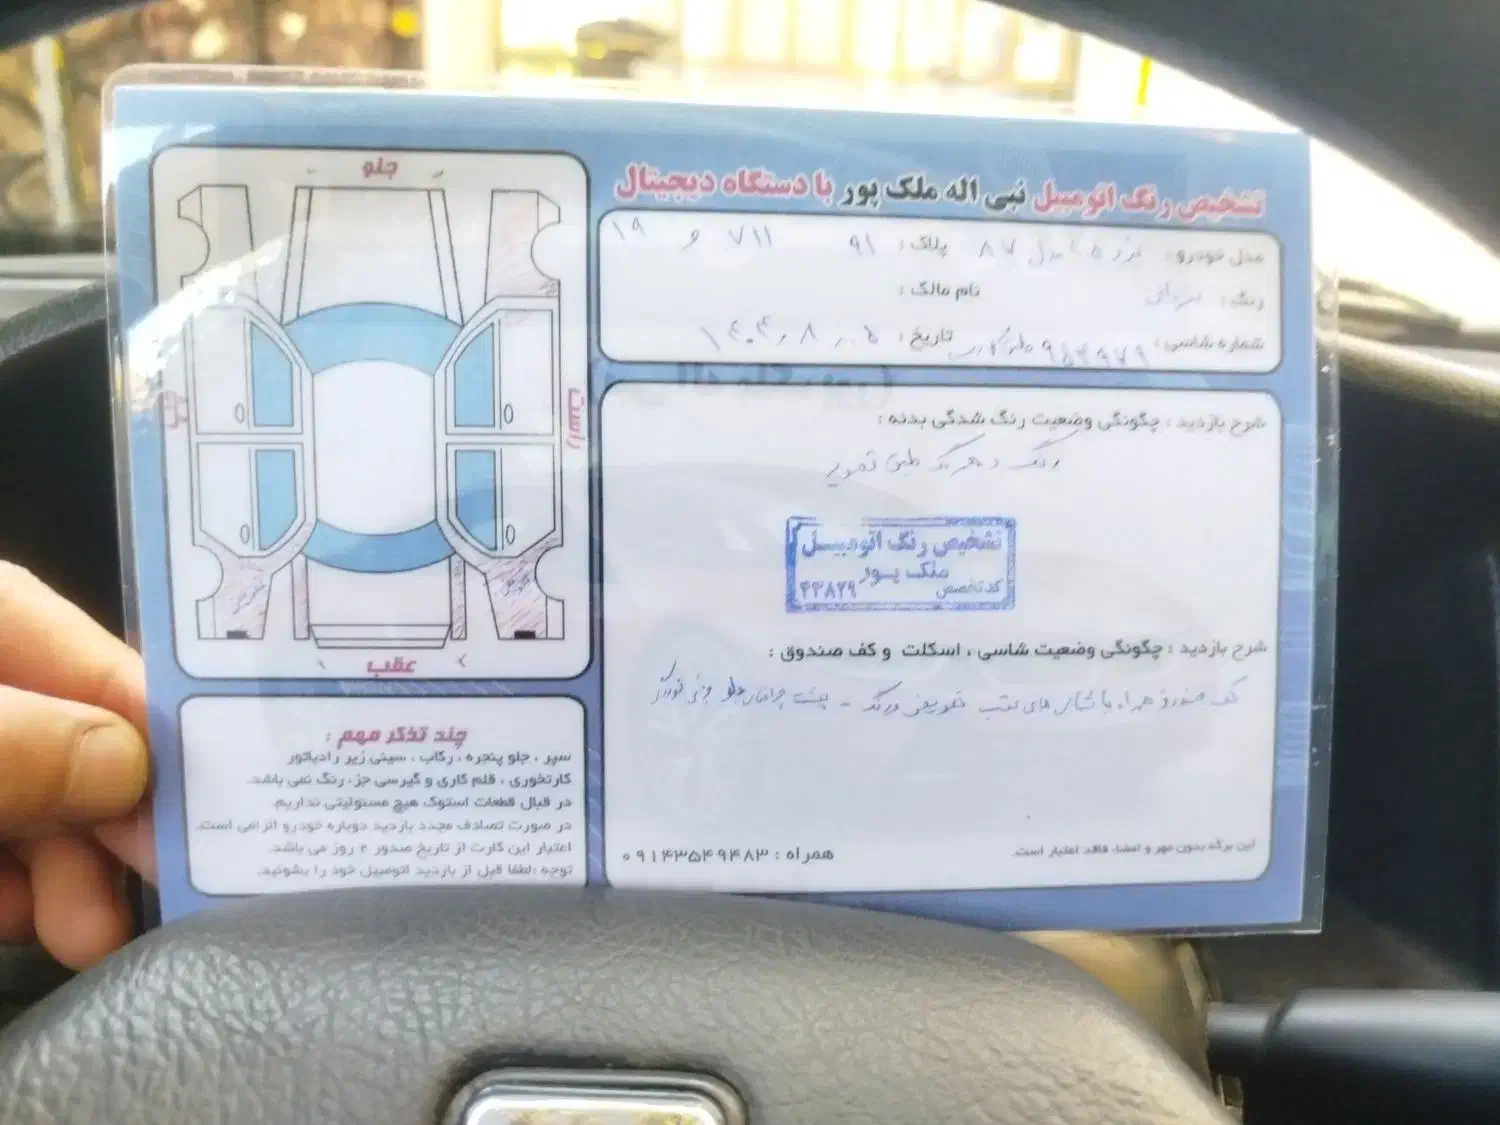 تشخیص رنگ اتومبیل نبی اله ملک پور با دستگاه دیجیتال
مدل خودرو: پژو مدل ۸۷ پلاک: ۹۱ ۷۱۱ و ۱۹
رنگ: نام مالک:
شماره شاسی: ۹۵۳۹۷۹ تاریخ: ۱۴۰۴٫۸٫۰۵
شرح بازدید: چگونگی وضعیت رنگ شدگی بدنه:
رنگ طبق تصویر
تشخیص رنگ اتومبیل
ملک پور
کد تخصص ۴۳۸۲۹
شرح بازدید: چگونگی وضعیت شاسی، اسکلت و کف صندوق:
کف صندوق همراه با شاسی های عقب تعویض و رنگ - پشت چراغهای جلو
این برگه بدون مهر و امضاء فاقد اعتبار است.
همراه: ۰۹۱۴۳۵۴۹۴۸۳
جلو
راست
عقب
چند تذکر مهم:
سپر، جلو پنجره، رکاب، سینی زیر رادیاتور
کارتخوری، قلم کاری و گیرسی جزء رنگ نمی باشد.
در قبال قطعات استوک هیچ مسئولیتی نداریم.
در صورت تصادف مجدد بازدید دوباره خودرو الزامی است.
اعتبار این کارت از تاریخ صدور ۲ روز می باشد.
توجه: لطفا قبل از بازدید اتومبیل خود را بشوئید.